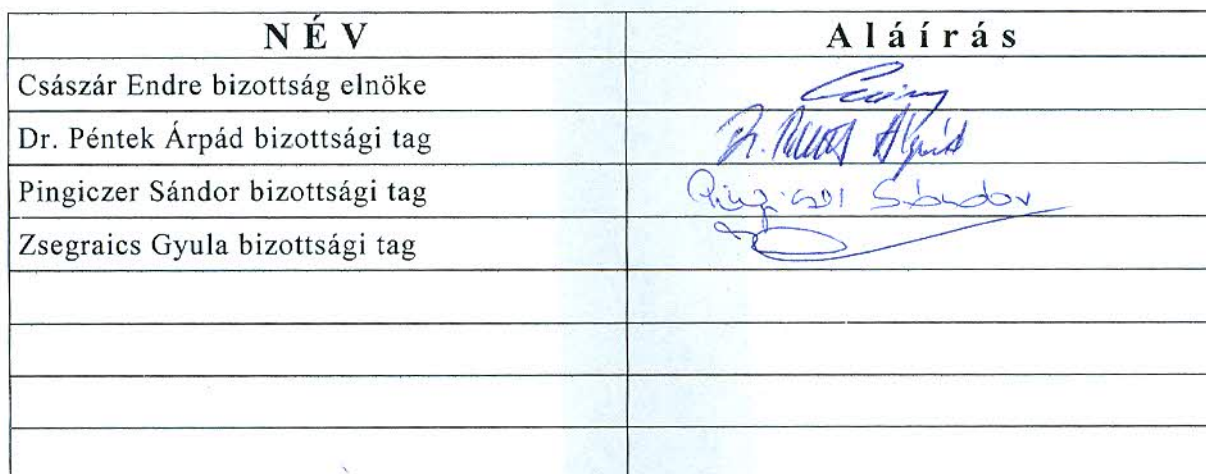 NÉV Aláírás
Császár Endre bizottság elnöke
Dr. Péntek Árpád bizottsági tag Dr. Péntek Árpád
Pingiczer Sándor bizottsági tag Pingiczer Sándor
Zsegraics Gyula bizottsági tag